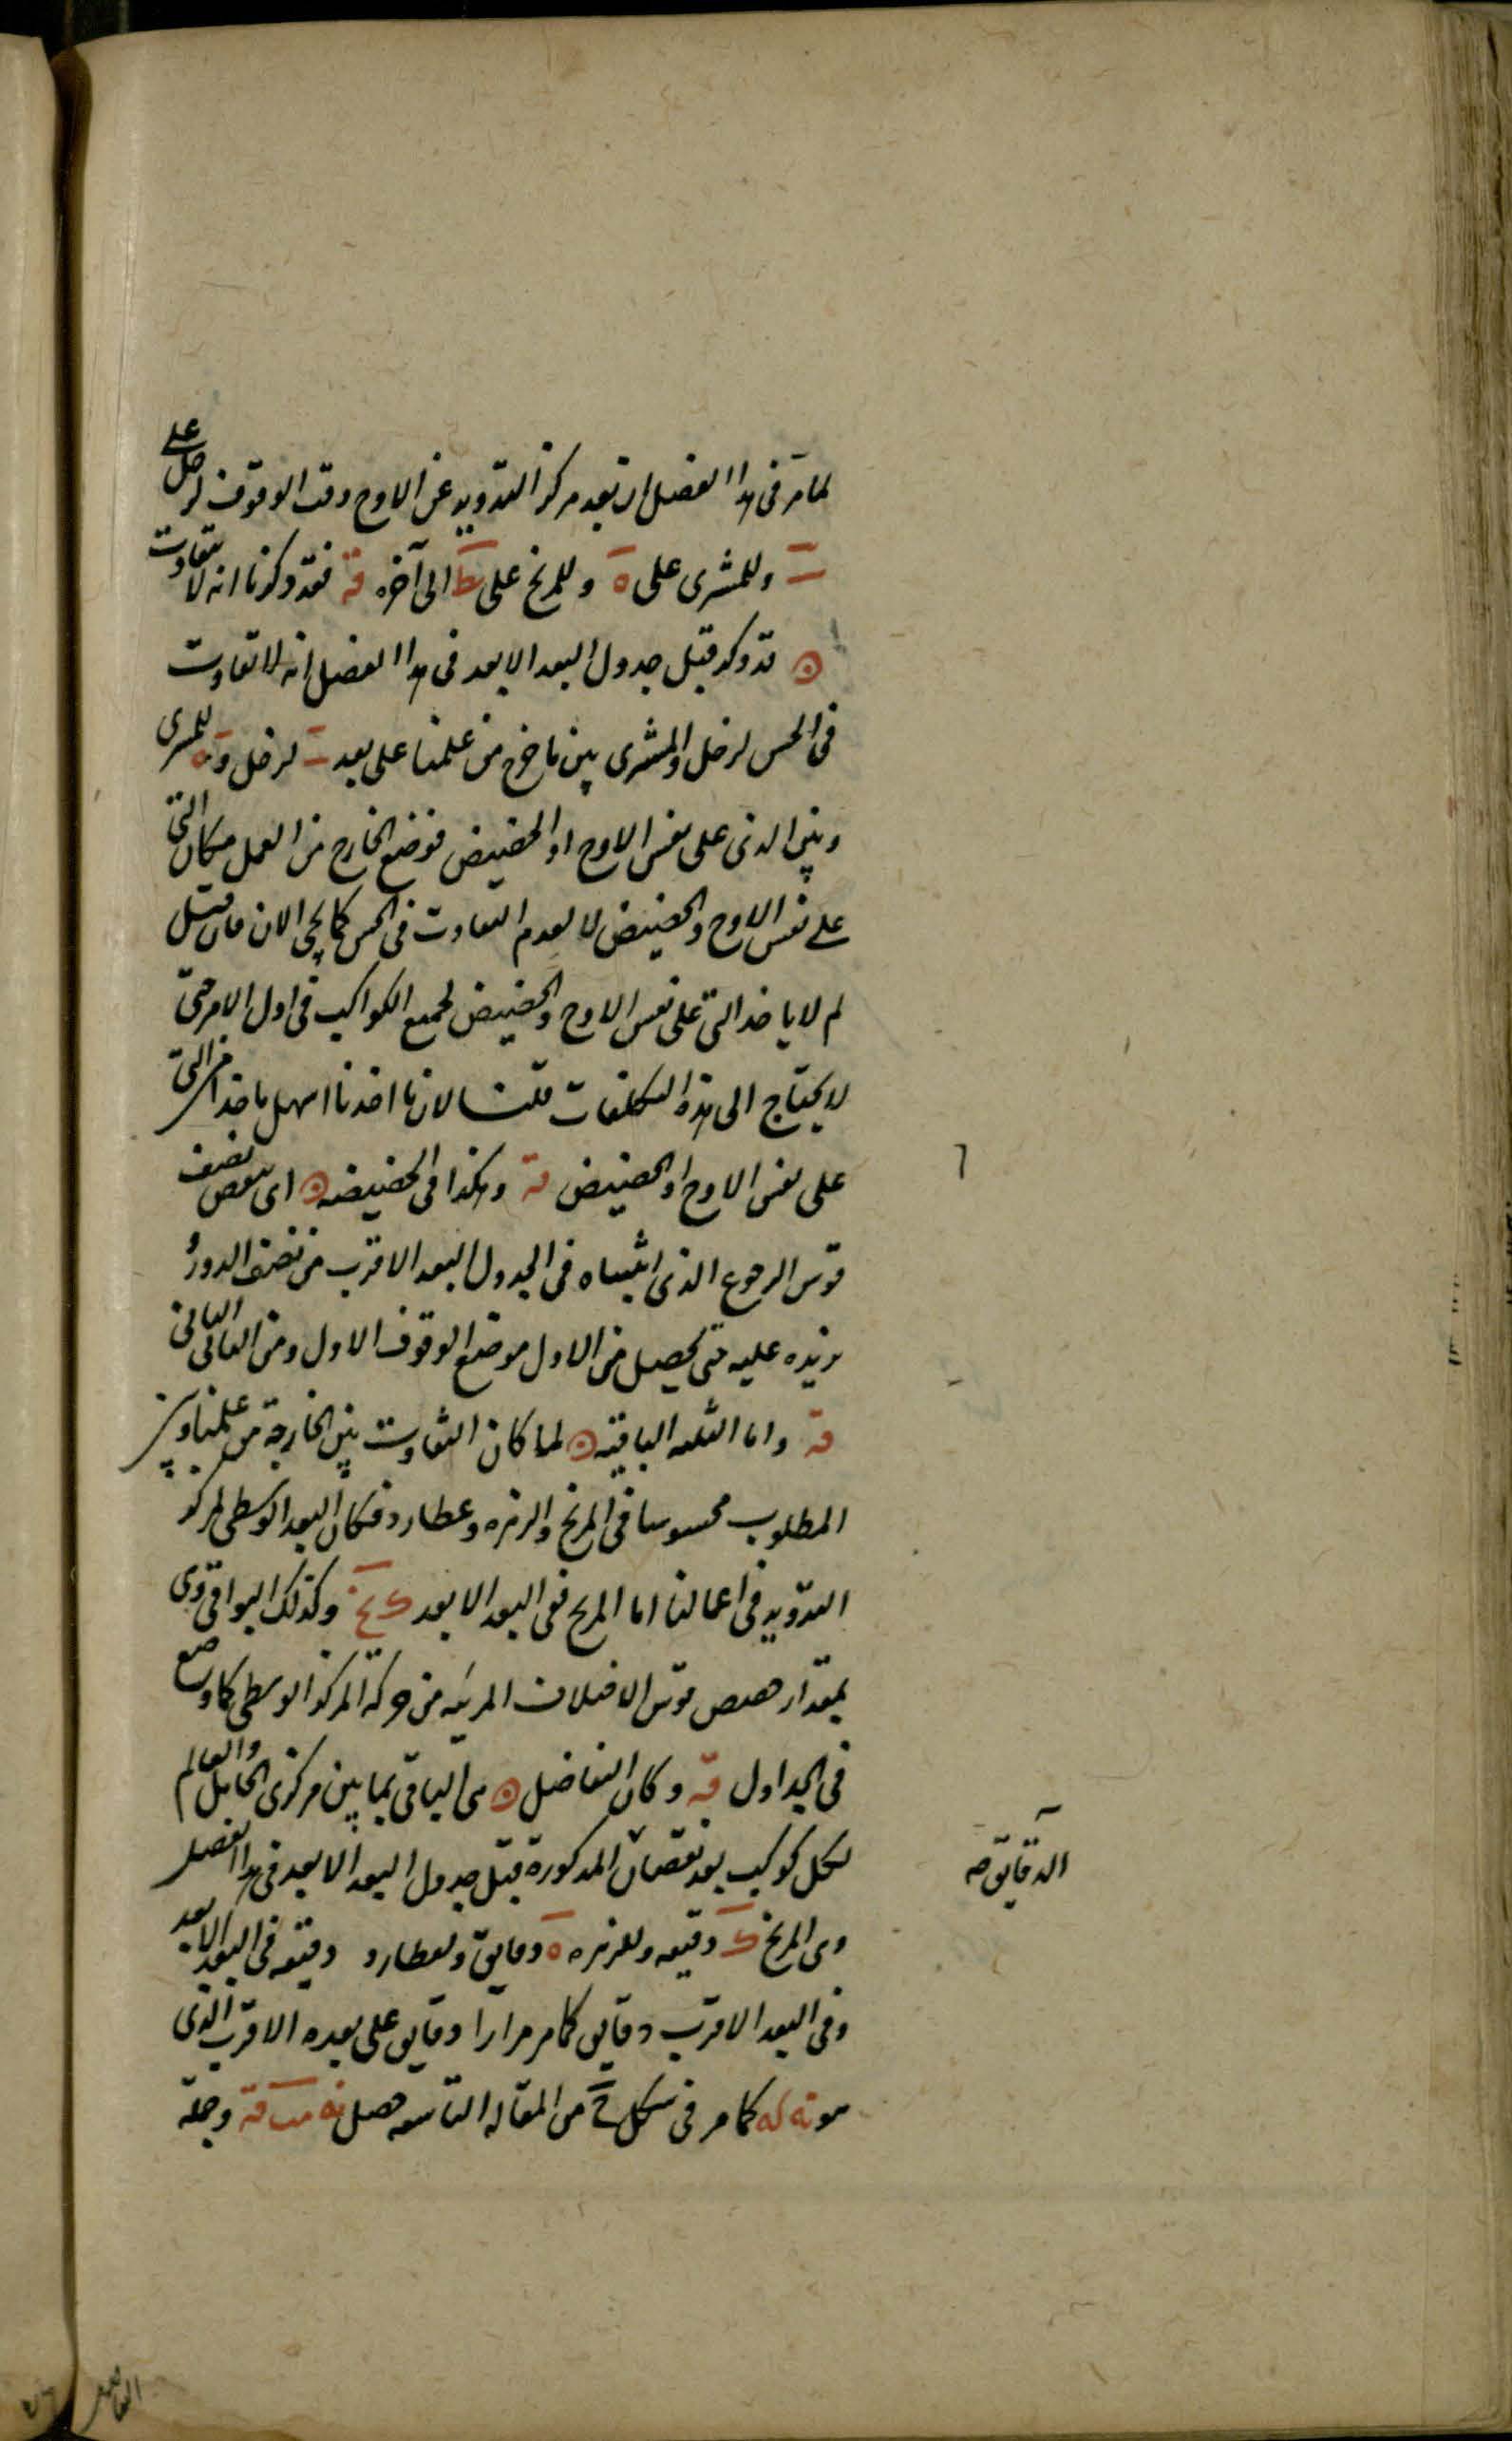 لما مر فى هذا الفصل ان بعد مركز التدوير عن الاوج وقت الوقوف لزحل على
وللمشترى على ه وللمريخ على ط الى آخره قه فقد ذكرنا انه لا تفاوت
قد ذكر قبل جدول البعد الابعد فى هذا الفصل انه لا تفاوت
فى الحس لزحل والمشترى بين ما خرج من علمنا على بعد لزحل و ه للمشترى
وبين الذى على نفس الاوج او الحضيض فوضع الخارج من العمل مكان التى
على نفس الاوج والحضيض لا لعدم التفاوت فى الحس كما يجى الان فان قيل
لم لا ياخذ التى على نفس الاوج والحضيض لجميع الكواكب فى اول الامر حتى
لا يحتاج الى هذه التكلفات قلنا لان ما اخذنا اسهل ماخذا من التى
على نفس الاوج او الحضيض قه وهكذا فى الحضيضه اى ننقص نصف
قوس الرجوع الذى اثبتناه فى الجدول البعد الاقرب من نصف الدور و
نزيده عليه حتى يحصل من الاول موضع الوقوف الاول ومن الثانى الثانى
قه واما الثلثه الباقيه لما كان التفاوت بين الخارجة من علمنا وبين
المطلوب محسوسا فى المريخ والزهره وعطارد فكان البعد الوسطى لمركز
التدوير فى اعمالنا اما المريخ ففى البعد الابعد ك نح وكذلك البواقى وى
بمقدار حصص قوس الاختلاف المرئيه من حركة المركز الوسطى كما وضع
فى الجداول قه وكان التفاضل هى الباقى بما بين مركزى الحامل والعالم
لكل كوكب بعد نقصان المذكورة قبل جدول البعد الابعد فى هذا الفصل
وى المريخ ك دقيقه وللزهره ه دقايق ولعطارد دقيقه فى البعد الابعد
وفى البعد الاقرب دقايق كما مر مرارا دقايق على بعده الاقرب الذى
هو نه له كما مر فى شكل ح من المقاله التاسعه حصل نه مب قه وجملة
الدقايق صه